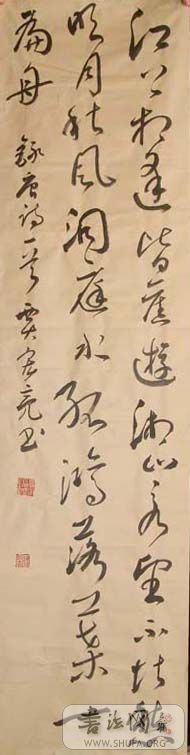 江上相逢皆舊遊湘山永望不堪愁
明月秋風洞庭水孤鴻落葉一
扁舟
錄唐詩一首
書法
WWW.SHUFA.ORG